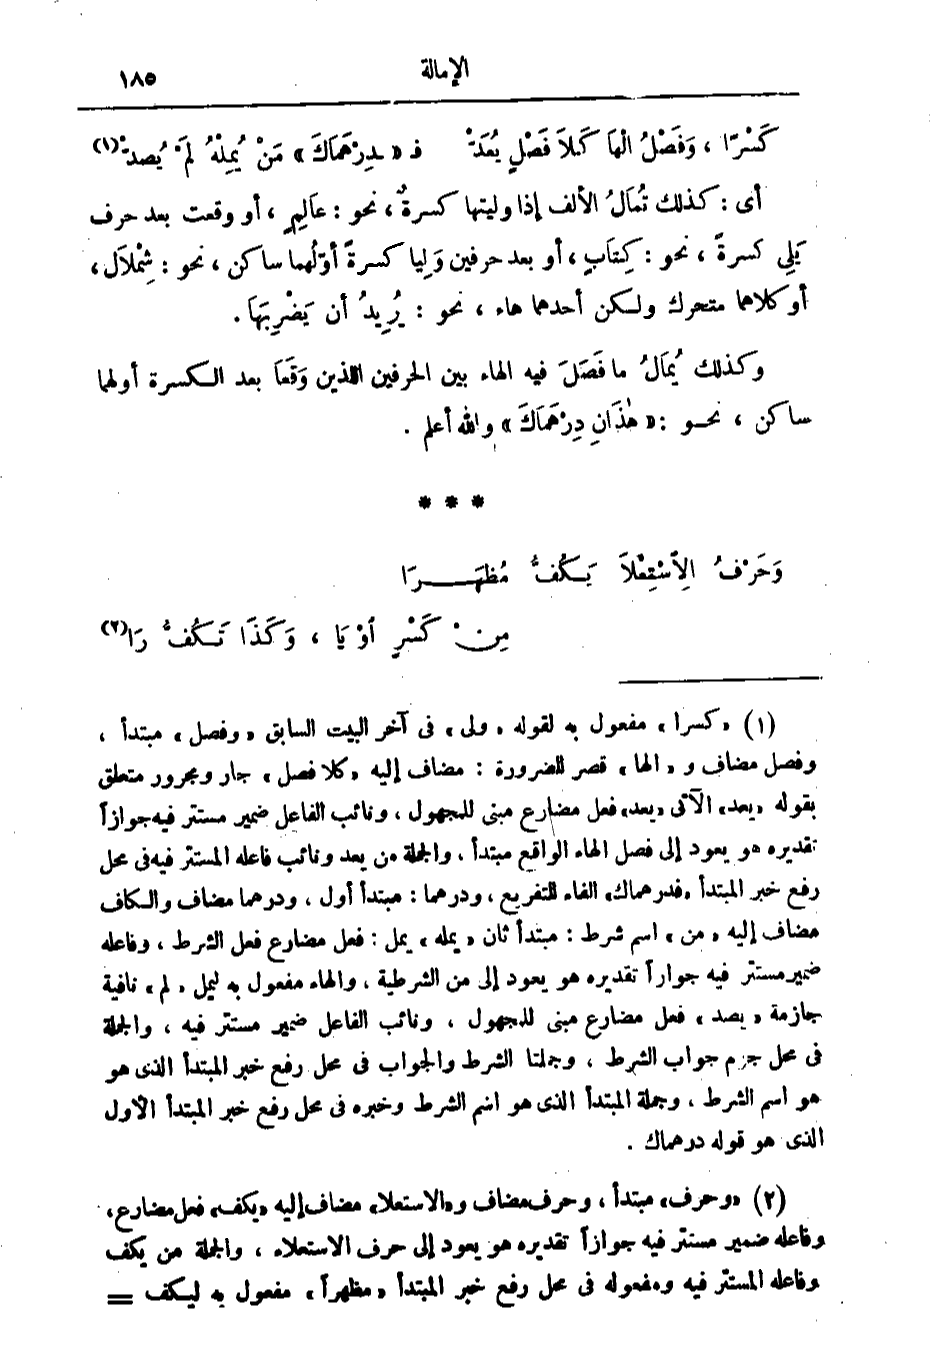 الإمالة ١٨٥
كَسْرًا ، وَفَصْلُ الْهَا كَلاَ فَصْلٍ يُعَدّْ فـ « ـدِرْهَمَاكَ » مَنْ يُمِلْهُ لَمْ يُصدّْ (١)
أى : كذلك تُمَالُ الألف إذا وليتها كسرةٌ ، نحو : عاَلِمٍ ، أو وقعت بعد حرف
يَلِي كسرةً ، نحو : كِتاَبٍ ، أو بعد حرفين وَلِيا كسرةً أوّلُهما ساكن ، نحو : شِمْلاَل ،
أو كلاهما متحرك ولكن أحدهما هاء ، نحو : يُرِيدُ أن يَضْرِبَهَا .
وكذلك يُمَالُ ما فَصَلَ فيه الهاء بين الحرفين اللذين وَقَعَا بعد الكسرة أولهما
ساكن ، نحــو : « هٰذَانِ دِرْهَمَاكَ » والله أعلم .
* * *
وَحَرْفُ الِاسْتِعْلاَ يَكُفُّ مُظْهَــرَا
مِنْ كَسْرٍ اَوْ يَا ، وَكَذَا تَكُفُّ رَا (٢)
(١) « كسرا » مفعول به لقوله « ولى » فى آخر البيت السابق « وفصل » مبتدأ ،
وفصل مضاف و « الها » قصر للضرورة : مضاف إليه « كلا فصل » جار ومجرور متعلق
بقوله « يعد » الآتى « يعد » فعل مضارع مبنى للمجهول ، ونائب الفاعل ضمير مستتر فيه جوازاً
تقديره هو يعود إلى فصل الهاء الواقع مبتدأ ، والجملة من يعد ونائب فاعله المستتر فيه فى محل
رفع خبر المبتدأ « فدرهماك » الفاء للتفريع ، ودرهما : مبتدأ أول ، ودرهما مضاف والكاف
مضاف إليه « من » اسم شرط : مبتدأ ثان « يمله » يمل : فعل مضارع فعل الشرط ، وفاعله
ضمير مستتر فيه جوازاً تقديره هو يعود إلى من الشرطية ، والهاء مفعول به ليمل « لم » نافية
جازمة « يصد » فعل مضارع مبنى للمجهول ، ونائب الفاعل ضمير مستتر فيه ، والجملة
فى محل جزم جواب الشرط ، وجملتا الشرط والجواب فى محل رفع خبر المبتدأ الذى هو
هو اسم الشرط ، وجملة المبتدأ الذى هو اسم الشرط وخبره فى محل رفع خبر المبتدأ الأول
الذى هو قوله درهماك .
(٢) « وحرف » مبتدأ ، وحرف مضاف و « الاستعلا » مضاف إليه « يكف » فعل مضارع ،
وفاعله ضمير مستتر فيه جوازاً تقديره هو يعود إلى حرف الاستعلاء ، والجملة من يكف
وفاعله المستتر فيه ومفعوله فى محل رفع خبر المبتدأ « مظهراً » مفعول به ليكف =